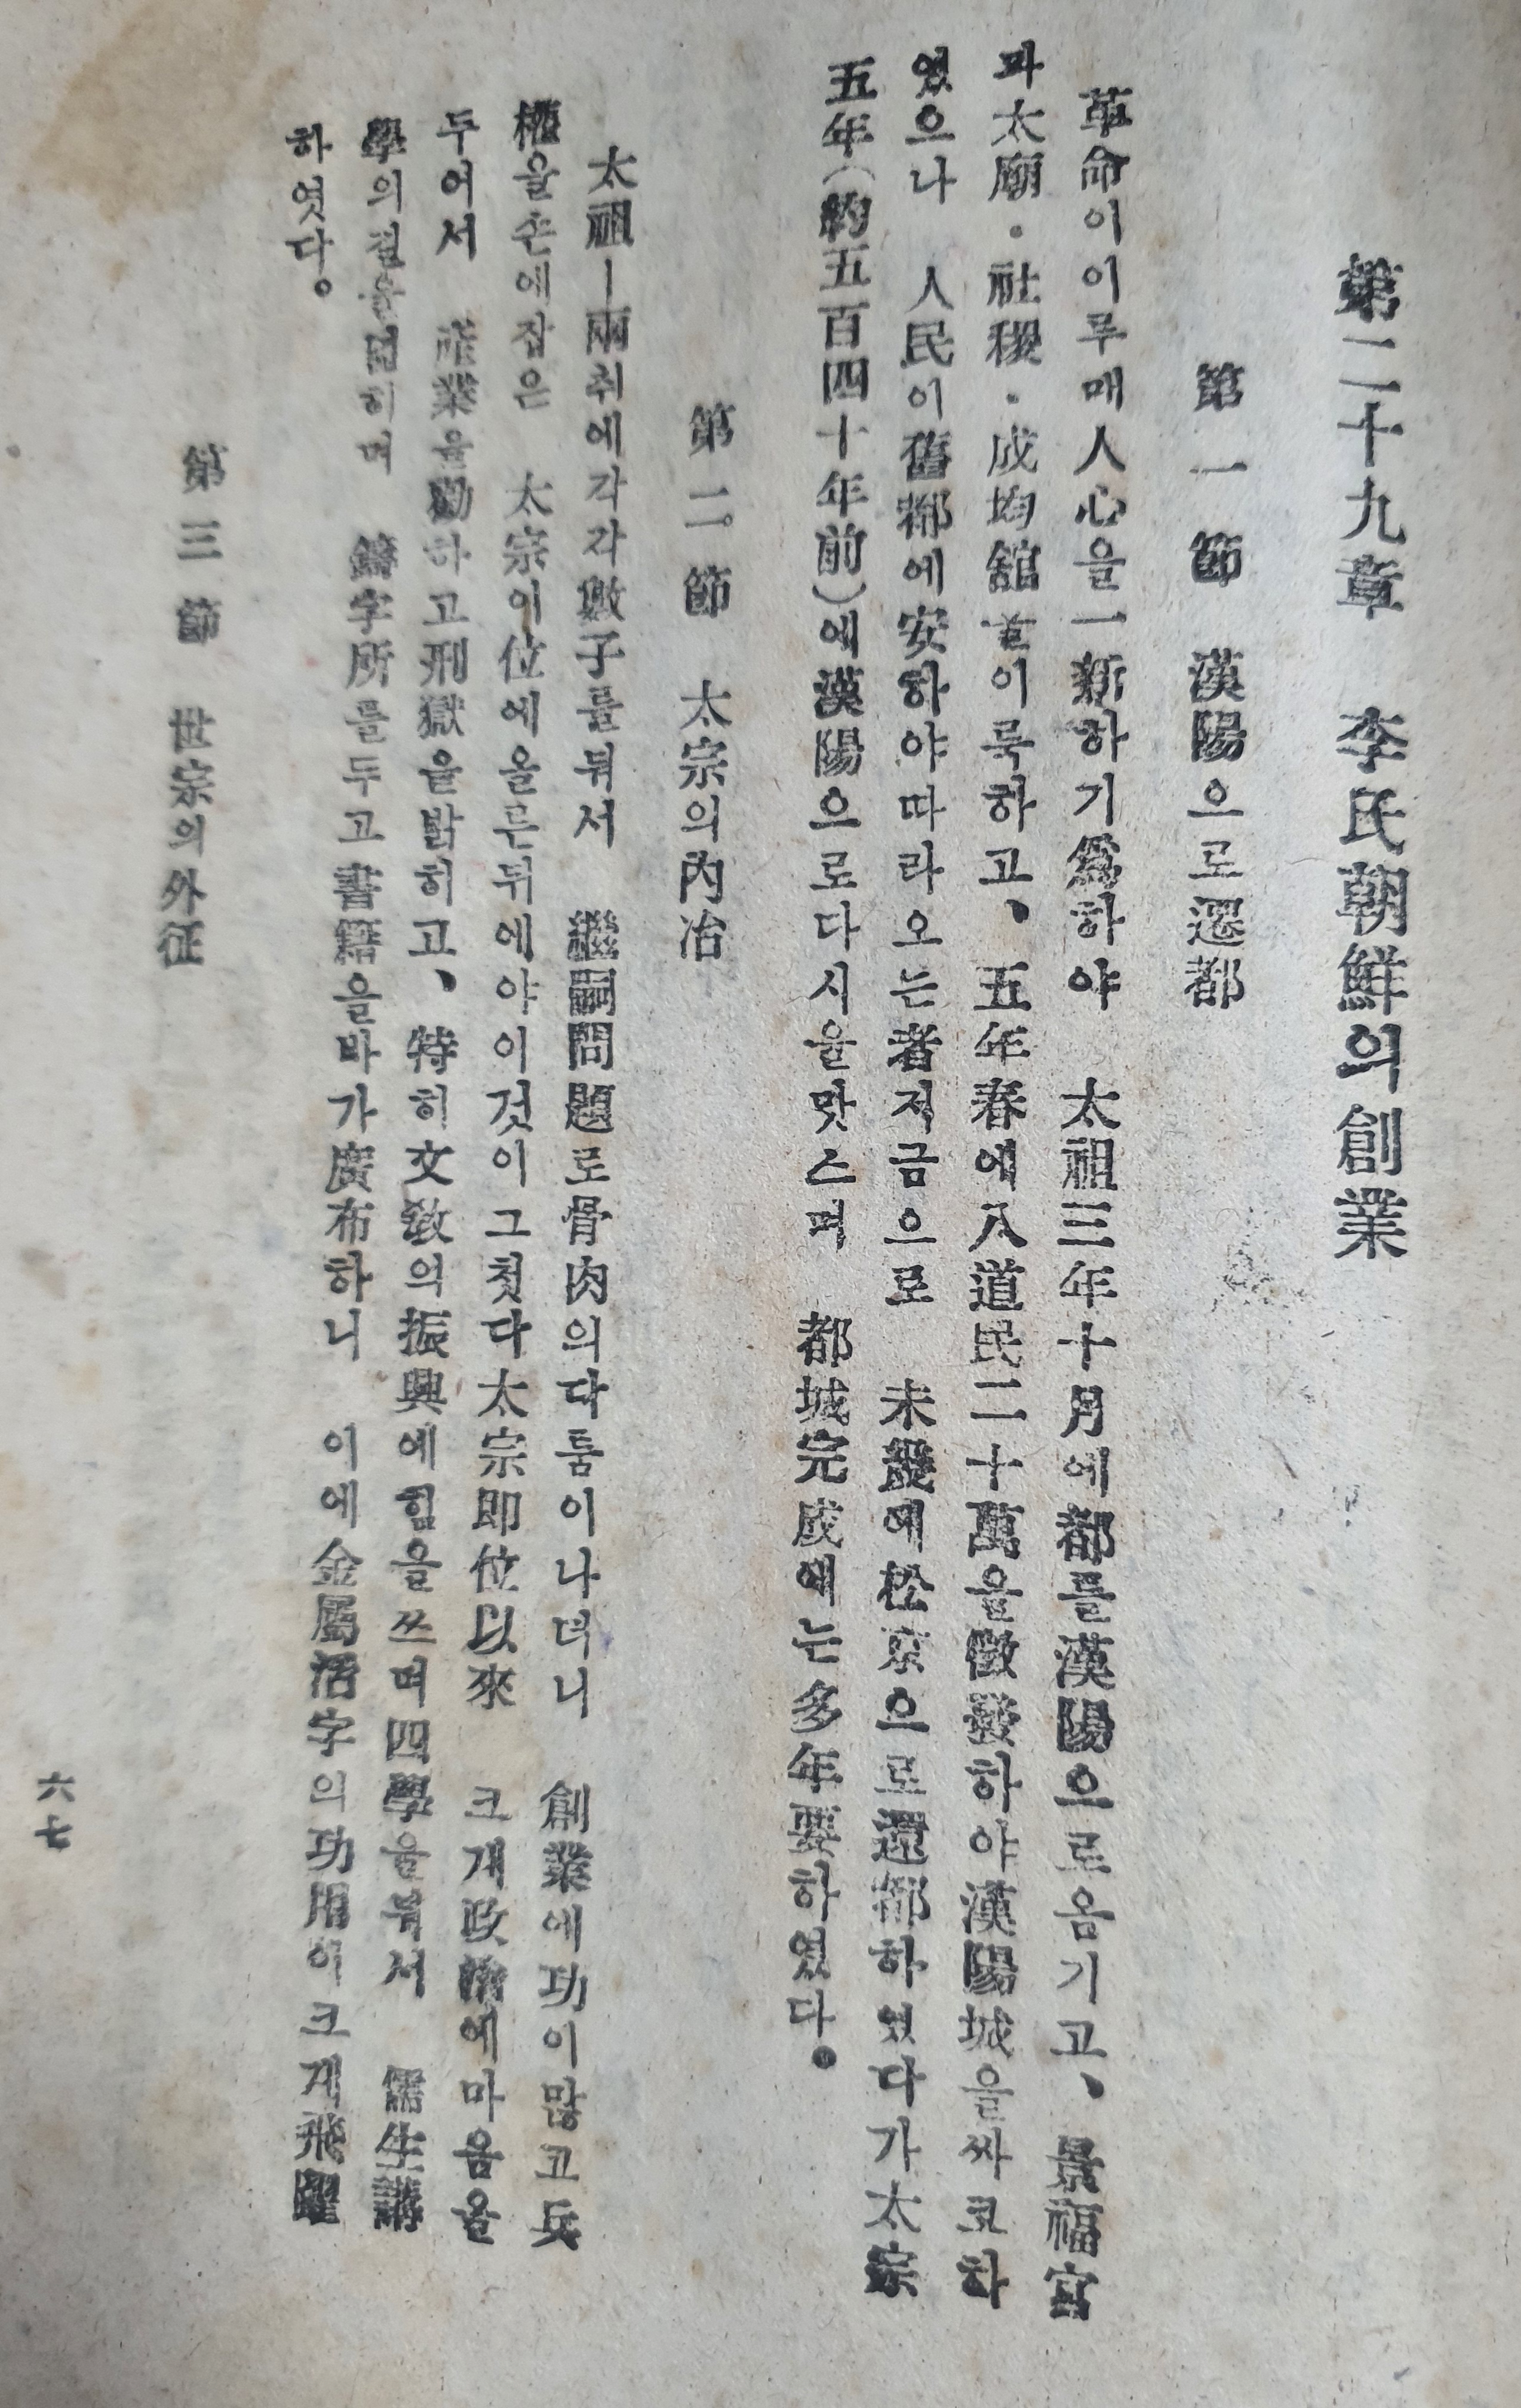 第二十九章 李氏朝鮮의創業
第一節 漢陽으로還都
革命이이루매人心을一新하기爲하야 太祖三年十月에都를漢陽으로옴기고、景福宮
과太廟·社稷·成均舘을이룩하고、五年春에八道民二十萬을徵發하야漢陽城을싸코하
였으나 人民이舊都에安하야따라오는者저금으로 未幾에松京으로還都하였다가太宗
五年(約五百四十年前)에漢陽으로다시을맛스며 都城完成에는多年要하였다。
第二節 太宗의內治
太祖ㅣ兩취에각각數子를둬서 繼嗣問題로骨肉의다툼이나더니 創業에功이많고兵
權을손에잡은 太宗이位에올른뒤에야이것이그첫다太宗即位以來 크개政治에마음을
두어서 産業을勸하고刑獄을밝히고、特히文敎의振興에힘을쓰며四學을둬서 儒生講
學의길을넓히며 鑄字所를두고書籍을바가廣布하니 이에金屬活字의功用이크게飛躍
하엿다。
第三節 世宗의外征
六七